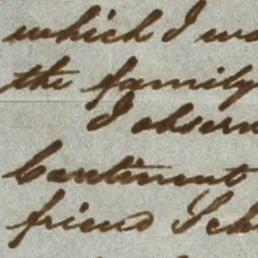 which I wa
the family
I observ
Continent
friend Sch